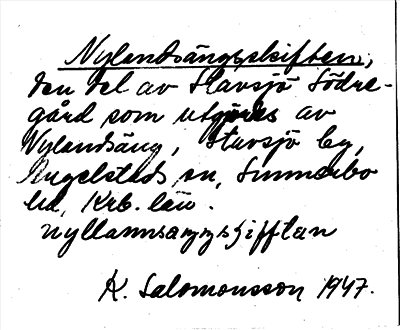 Nylandsängsskiften,
den del av Slavsjö Södre-
gård som utgöres av
Nylandsäng, Stavsjö by,
Angelstads sn, Sunnerbo
hd, Krb. län.
nyllannsaŋŋsjifftan
K. Salomonsson 1947.